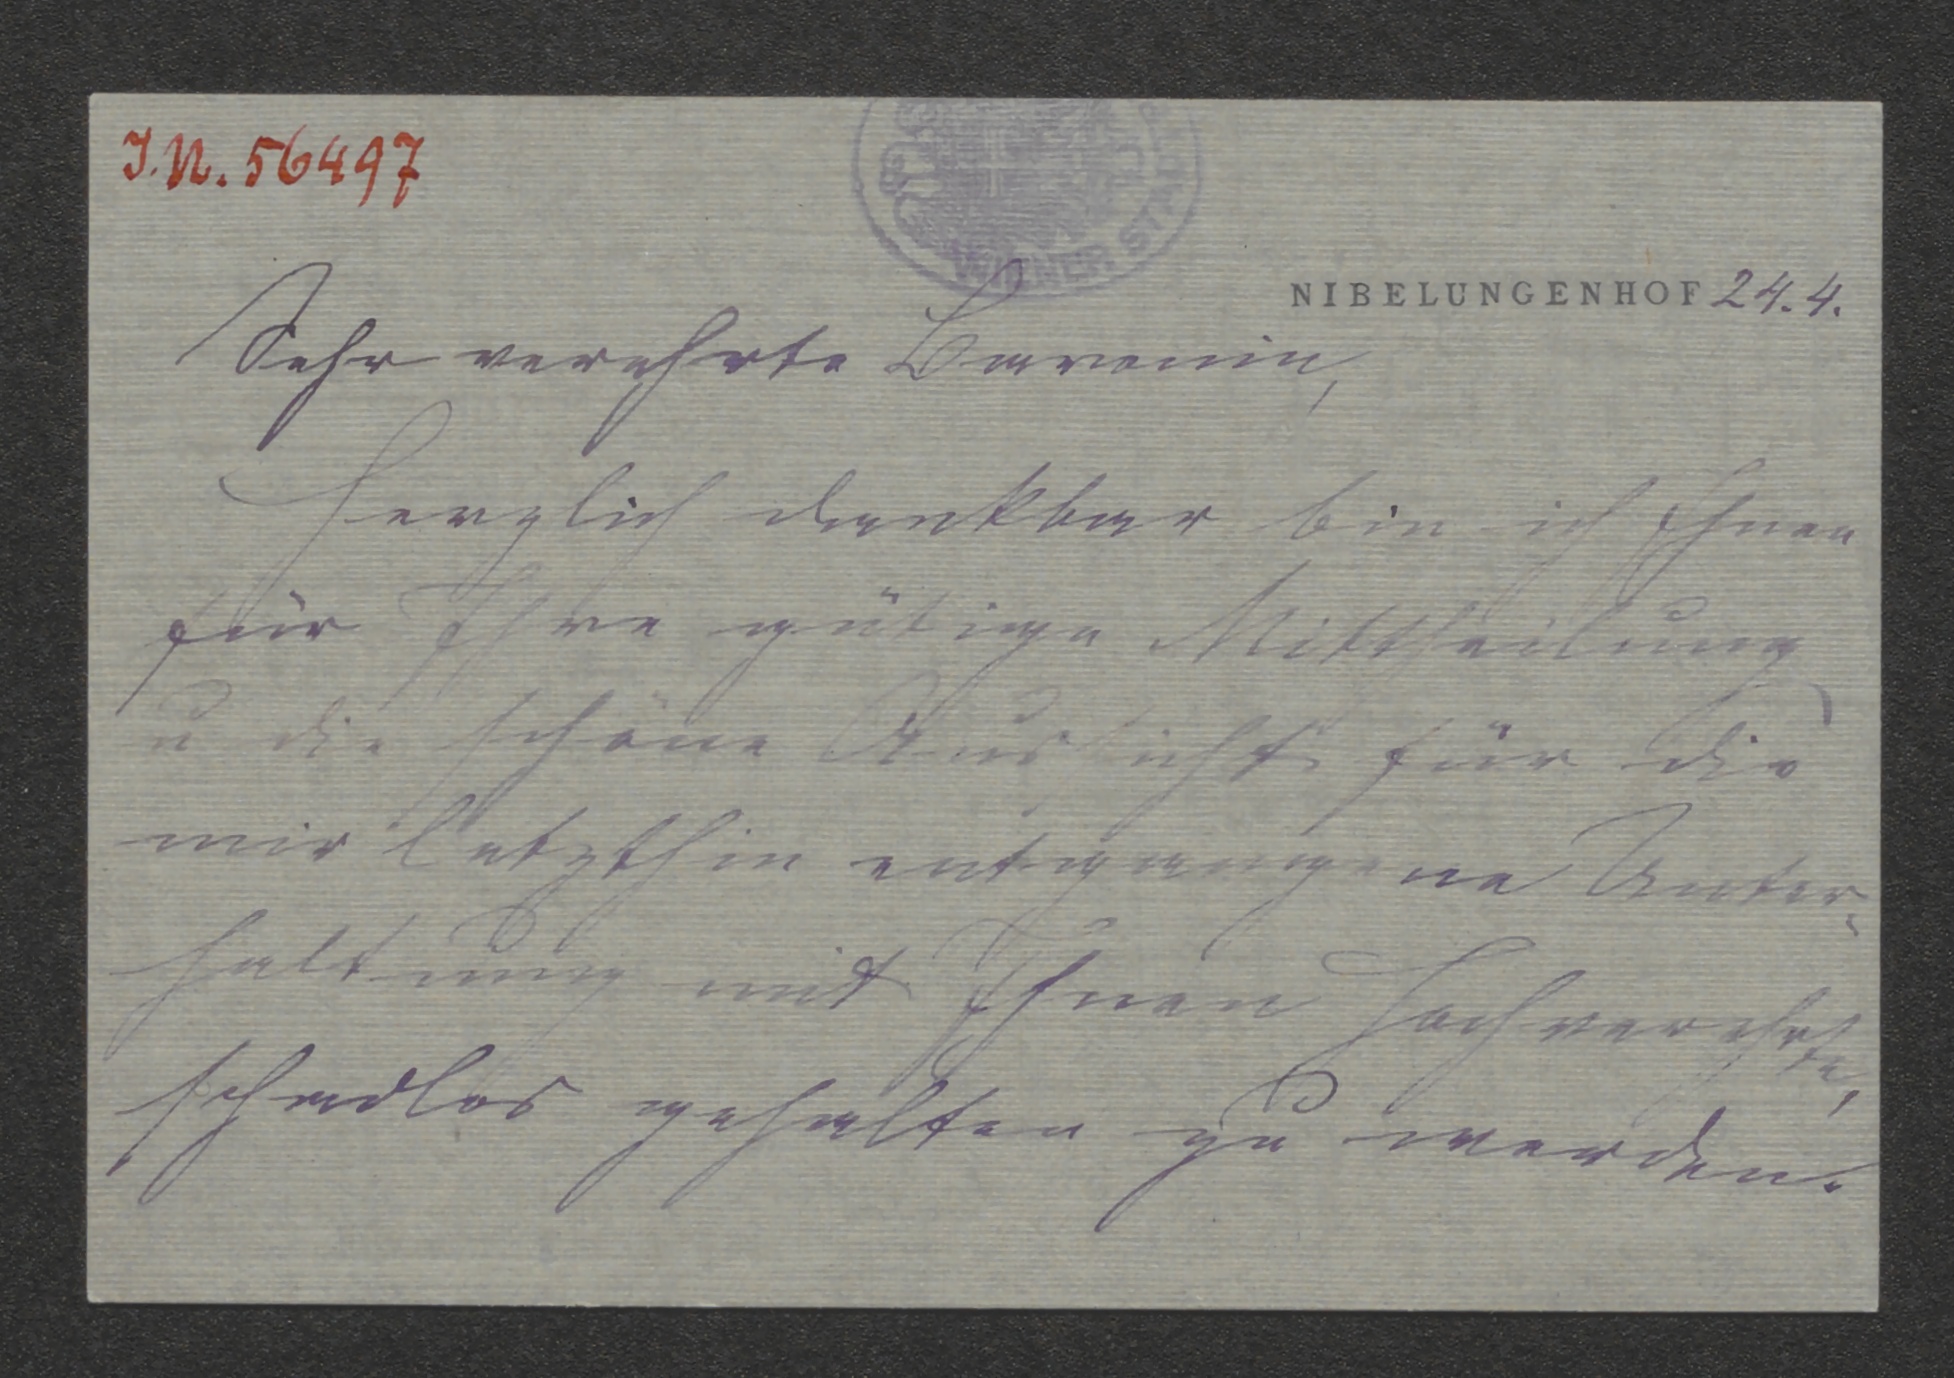 I.N. 56497
WIENER STADT
NIBELUNGENHOF 24.4.
Sehr verehrte Baronin,
Herzlich dankbar bin ich Ihnen
für Ihre gütige Mittheilung
u die schöne Aussicht für die
mir letzthin entgangene Unter-
haltung mit Ihnen Hochverehrte,
schadlos gehalten zu werden.